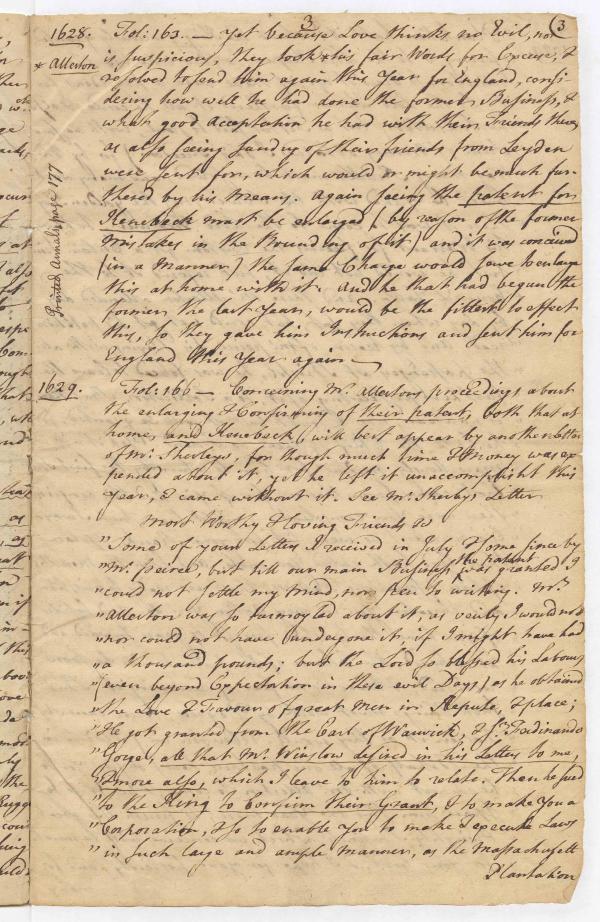 3
(3
1628. Fol: 163. — Yet because Love thinks no Evil, nor
* Allerton is suspicious, they took *his fair Words for Excuse, &
resolved to send him again this Year for England, consi
dering how well he had done the former Business, &
what good acceptation he had with their Friends there,
as also seeing sundry of their friends from Leyden
were sent for, which would or might be much fur
thered by his means. Again seeing the patent for
Kenebeck must be enlarged (by reason of the former
Mistakes in the Bounding of it) and it was conceived
(in a Manner) the same Charge would serve to enlarge
this at home with it. And he that had begun the
former the last Year, would be the fittest to effect
this, so they gave him Instructions and sent him for
England this Year again —
Printed Annals page 177
1629. Fol: 166 — Concerning Mr. Allertons proceedings about
the enlarging & Confirming of their patent, both that at
home, and Kenebeck, will best appear by another Letter
of Mr. Sherleys, for though much time & Money was ex
pended about it, yet he left it unaccomplisht this
Year, & came without it. See Mr. Sherleys Letter
Most Worthy & Loving Friends &c
"Some of your Letters I received in July & some since by
"Mr. Peirce, but till our main Business the patent was granted I
"could not settle my mind, nor pen to writing. Mr.
"Allerton was so turmoyled about it, as verily I would not
"nor could not have undergone it, if I might have had
"a thousand pounds; but the Lord so blessed his Labours
"(even beyond Expectation in these evil Days) as he obtained
"the Love & Favour of great Men in Repute, & place;
"He got granted from the Earl of Warwick, & Sr. Ferdinando
"Gorges, all that Mr. Winslow desired in his Letters to me,
"& more also, which I leave to him to relate. Then he sued
"to the King to Confirm their Grant, & to make You a
"Corporation, & so to enable You to make & execute Laws
"in such large and ample manner, as the Massachusett
Plantation